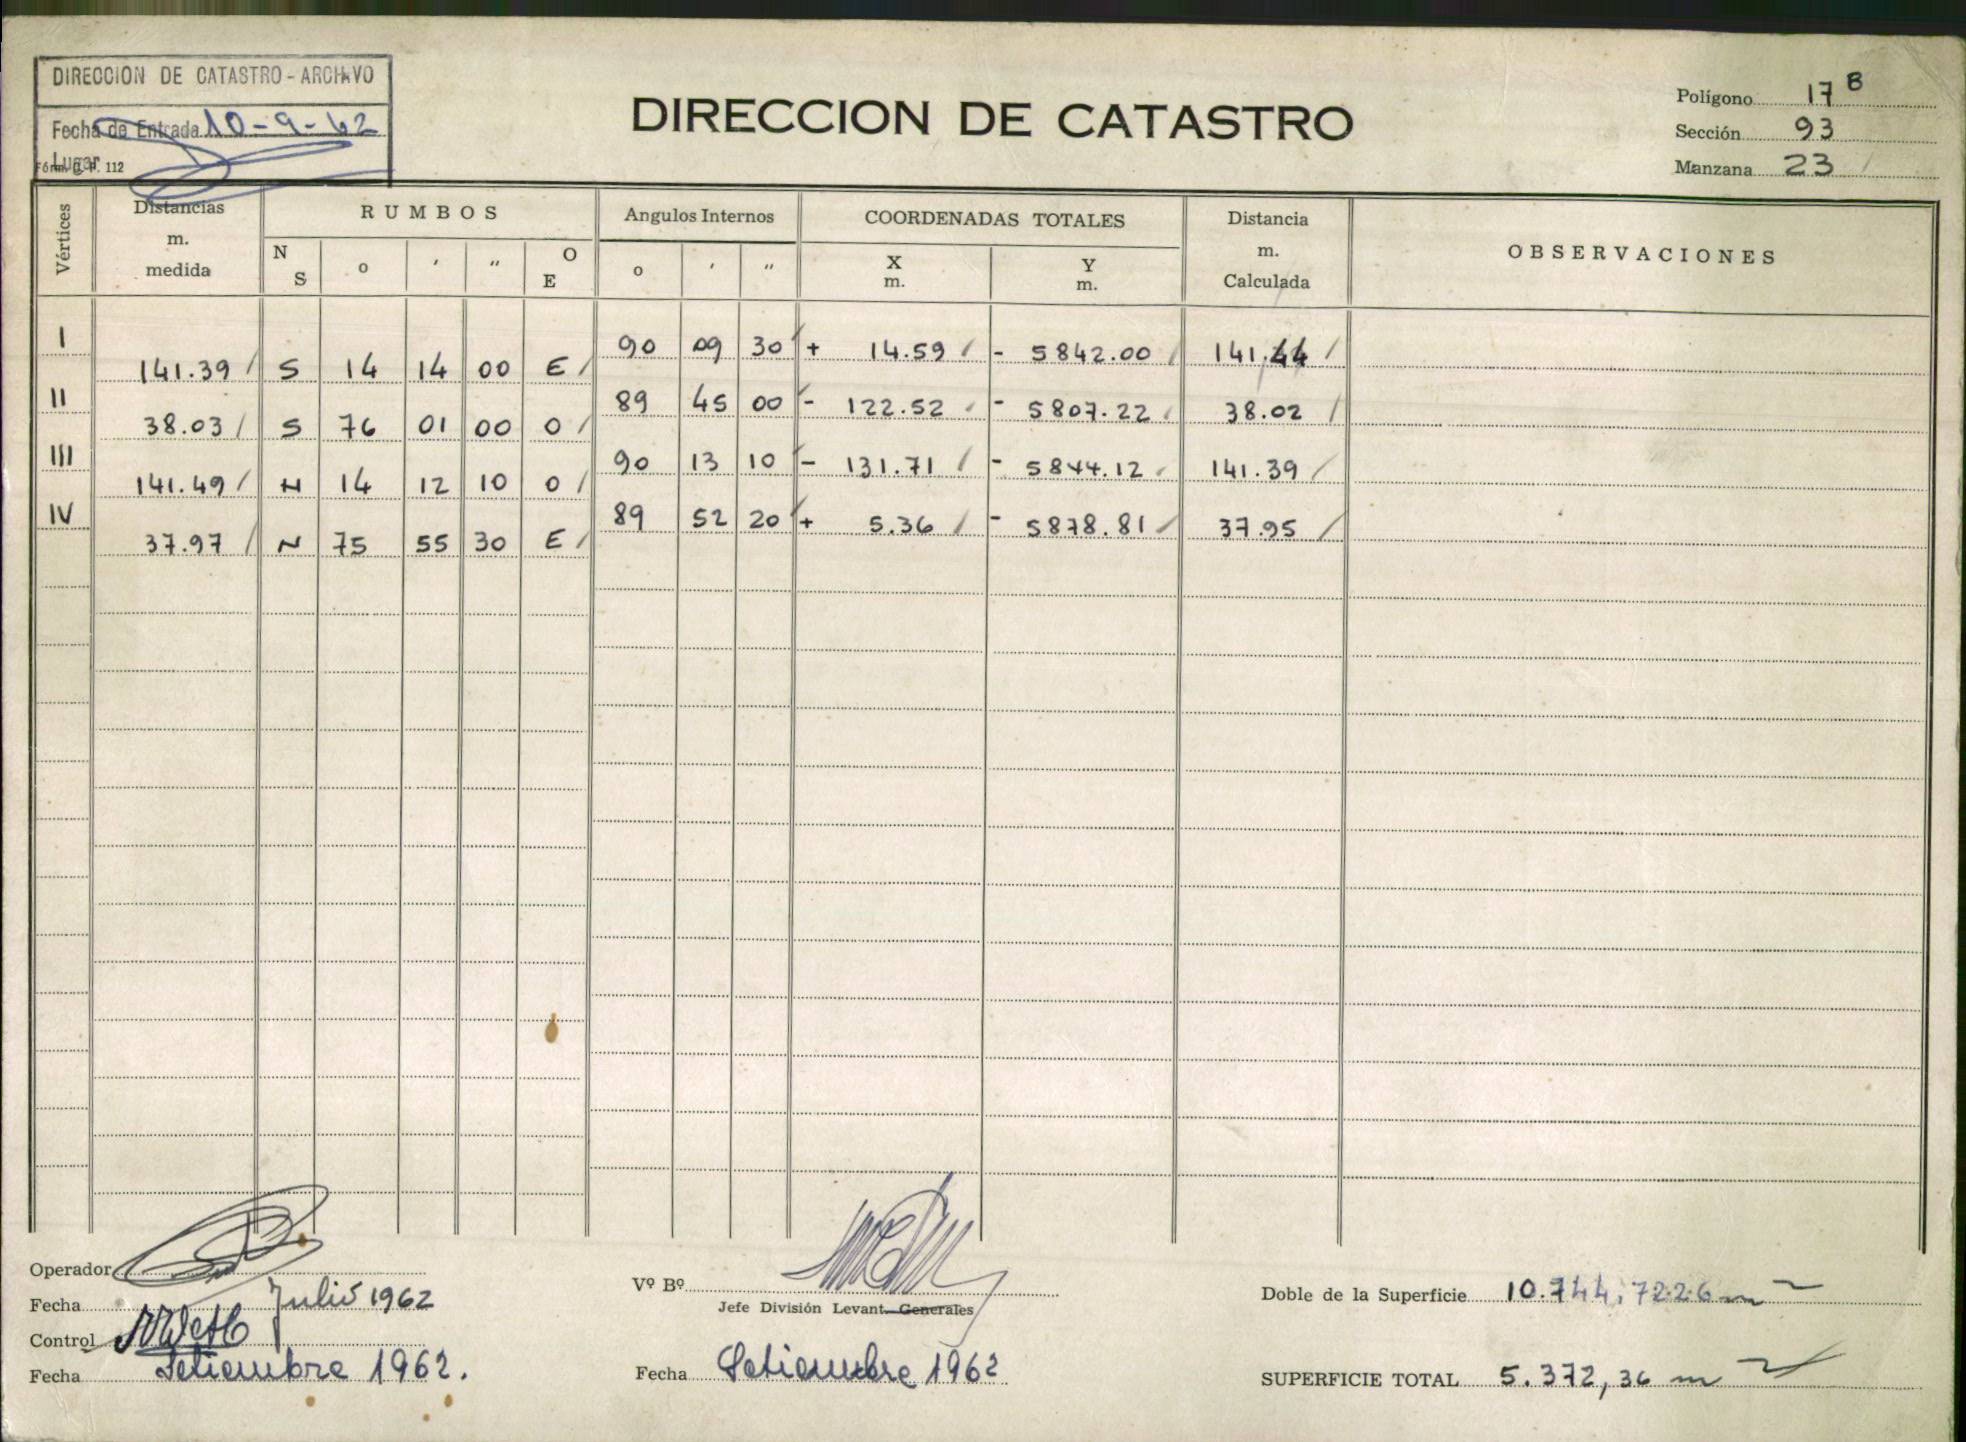 DIRECCION DE CATASTRO - ARCHIVO
Fecha de Entrada 10-9-62
Lugar
Fórm. D. P. 112
DIRECCION DE CATASTRO
Polígono 17 B
Sección 93
Manzana 23
Vértices Distancias m. medida RUMBOS N S o ' " O E Angulos Internos o ' " COORDENADAS TOTALES X m. Y m. Distancia m. Calculada OBSERVACIONES
I 90 09 30 + 14.59 - 5842.00 141.44
141.39 S 14 14 00 E
II 89 45 00 - 122.52 - 5807.22 38.02
38.03 S 76 01 00 O
III 90 13 10 - 131.71 - 5844.12 141.39
141.49 N 14 12 10 O
IV 89 52 20 + 5.36 - 5878.81 37.95
37.97 N 75 55 30 E
Operador
Fecha Julio 1962
Control
Fecha Setiembre 1962.
Vº Bº
Jefe División Levant. Generales
Fecha Setiembre 1962
Doble de la Superficie 10.744,7226 m
SUPERFICIE TOTAL 5.372,36 m 2